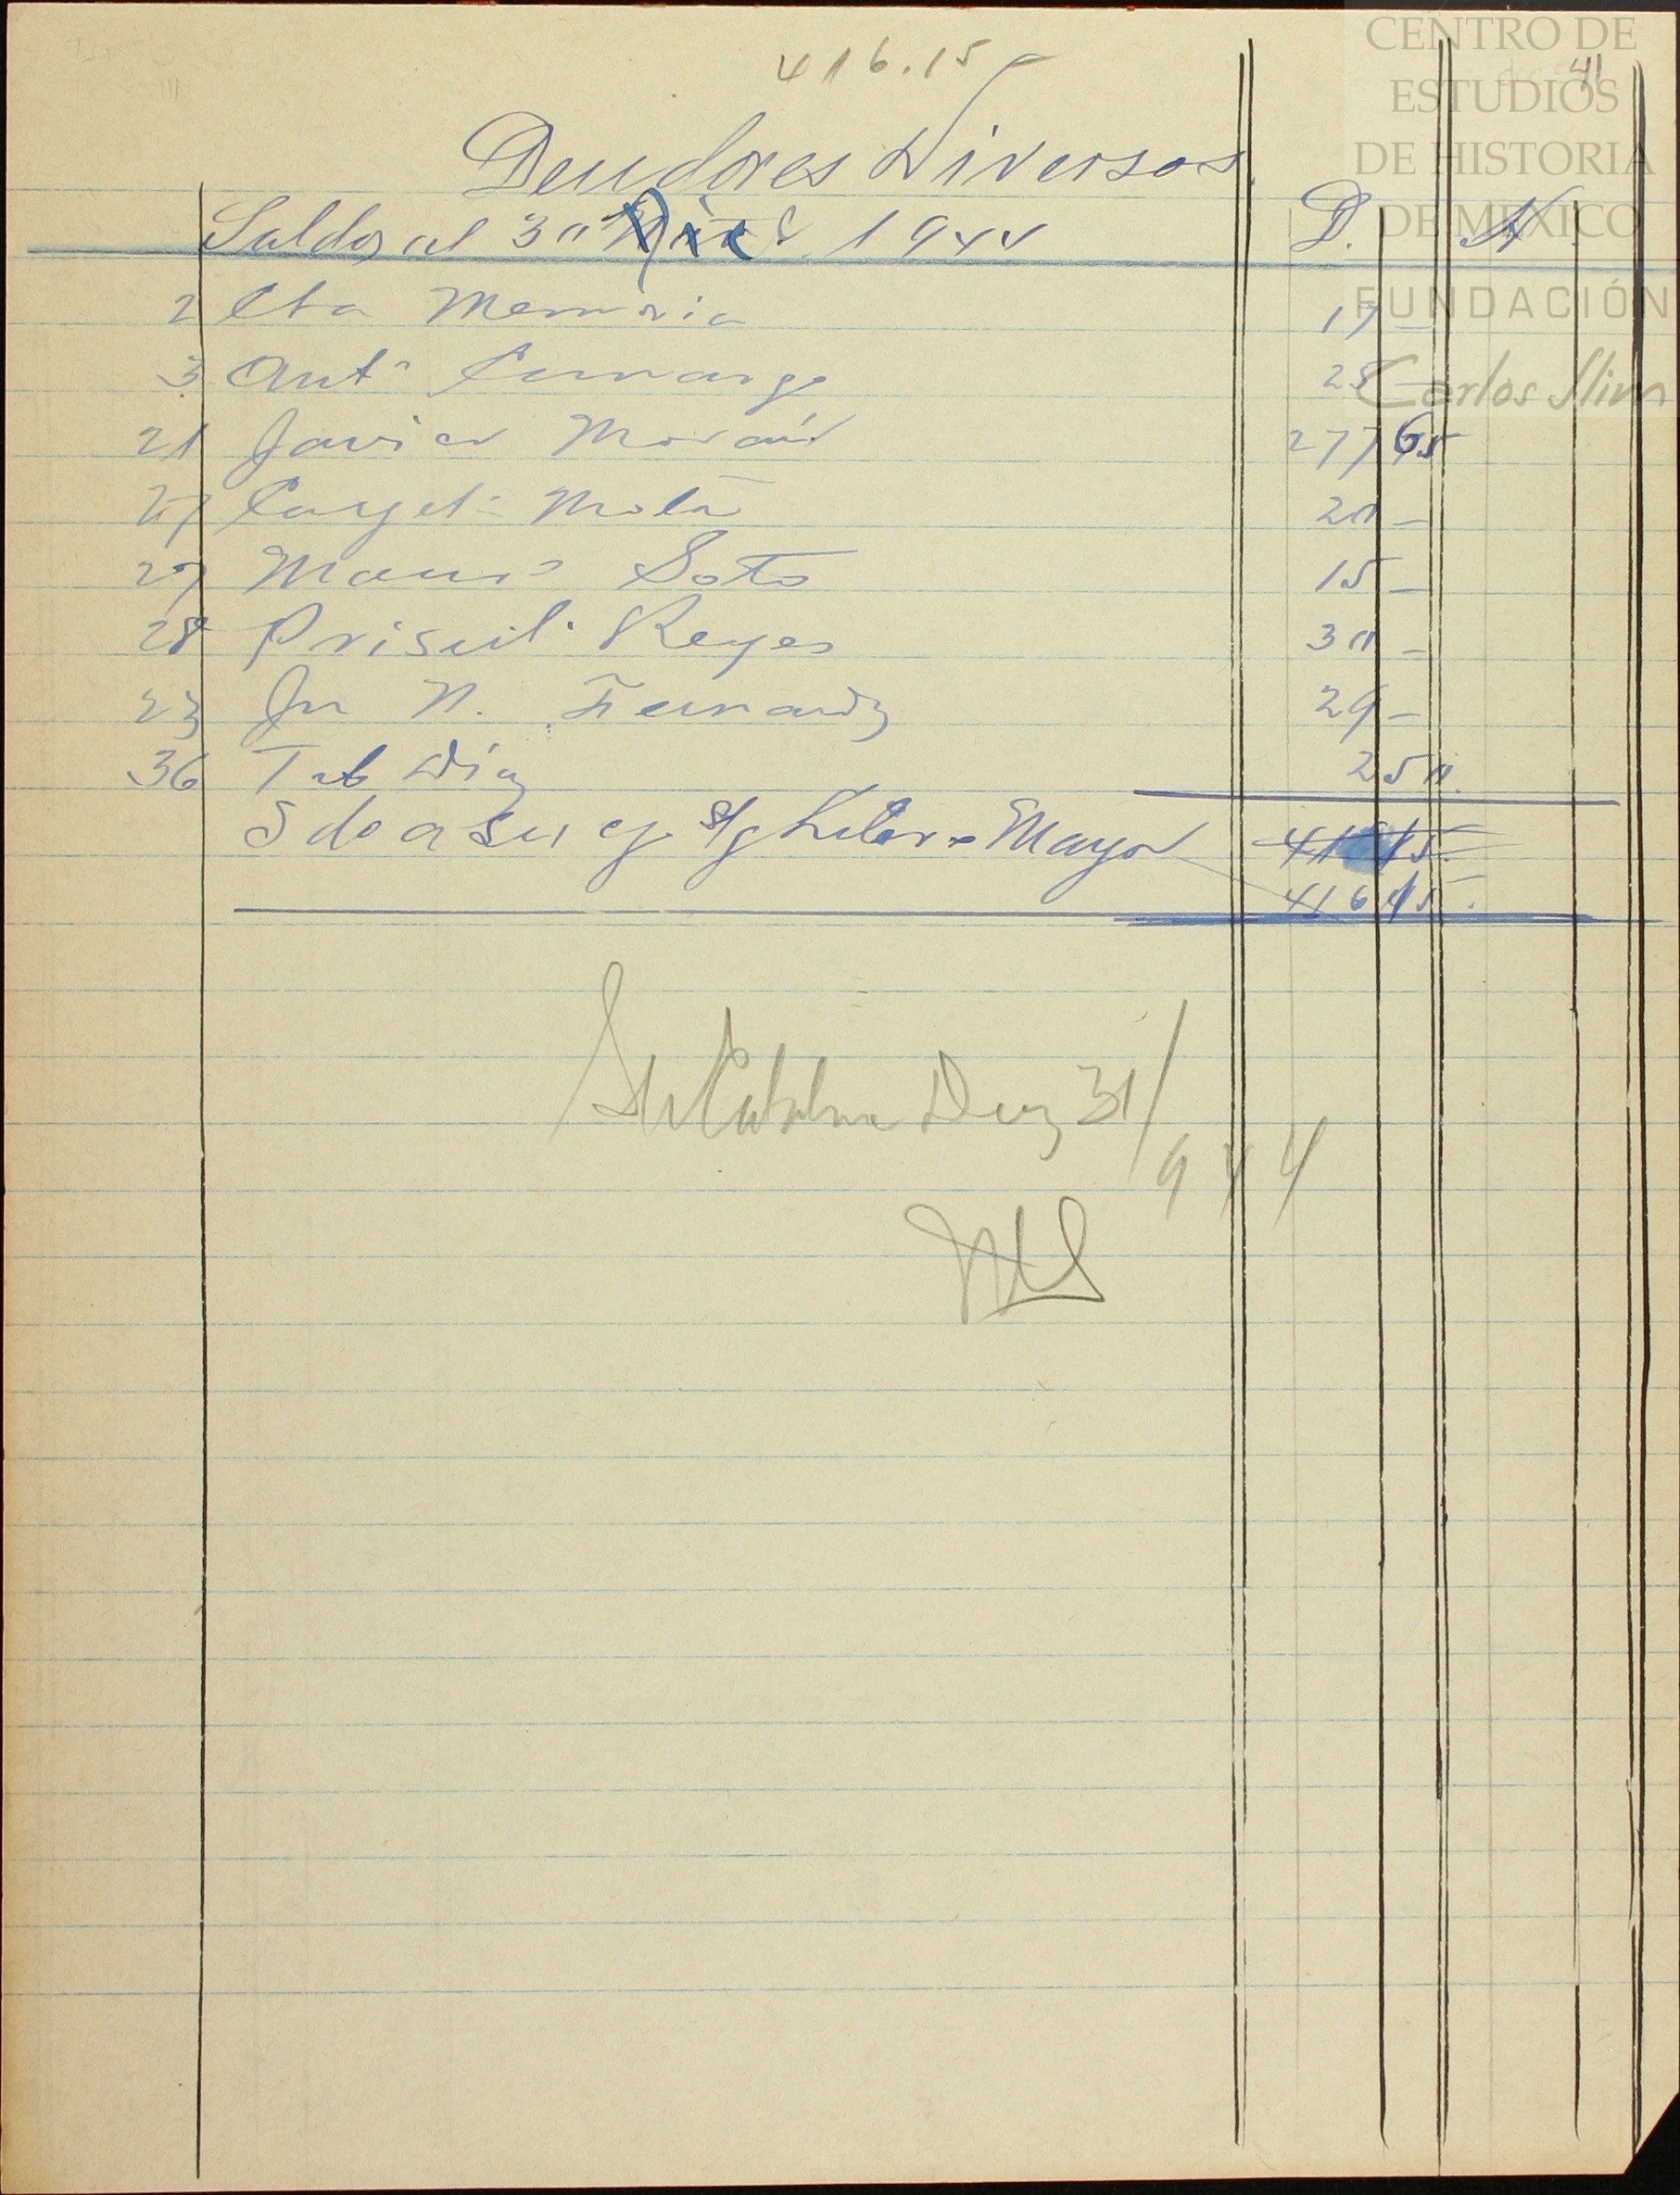 416.15
CENTRO DE
ESTUDIOS
DE HISTORIA
DE MÉXICO
FUNDACIÓN
Carlos Slim
41
Deudores Diversos.
Saldos al 30 Dic 1944 D. H
2 Cta Memoria 17 —
3 Ant° Camargo 25 —
21 Javier Morán 277 65
27 Mota 20 —
27 Manl Soto 15 —
28 Priscil. Reyes 30 —
23 Jn N. Fernandz 29 —
36 Tab Diaz 2 50
Sdo a su cgo s/g Libro Mayor
416 15.
Sta Catalina Dic 31/
944